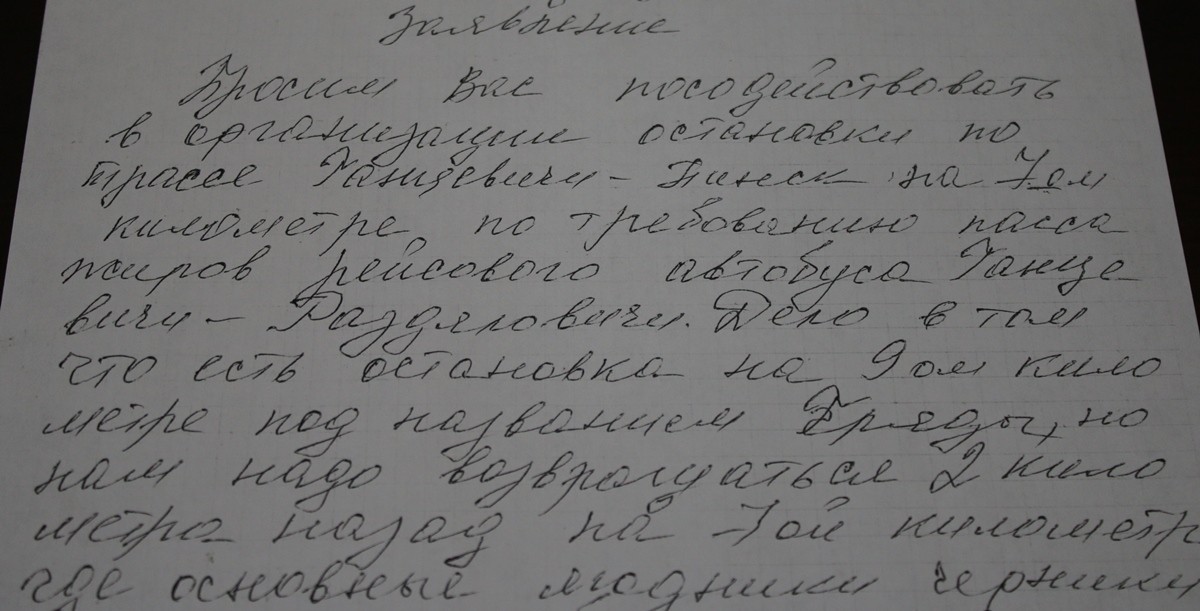 Заявление
Просим Вас посодействовать
в организации остановки по
трассе Ганцевичи - Пинск на 7ом
километре по требованию пасса
жиров рейсового автобуса Ганце
вичи - Раздяловичи. Дело в том
что есть остановка на 9ом кило
метре под названием Гряды, но
нам надо возвращаться 2 кило
метра назад на 7ой километр
где основные ягодники черники